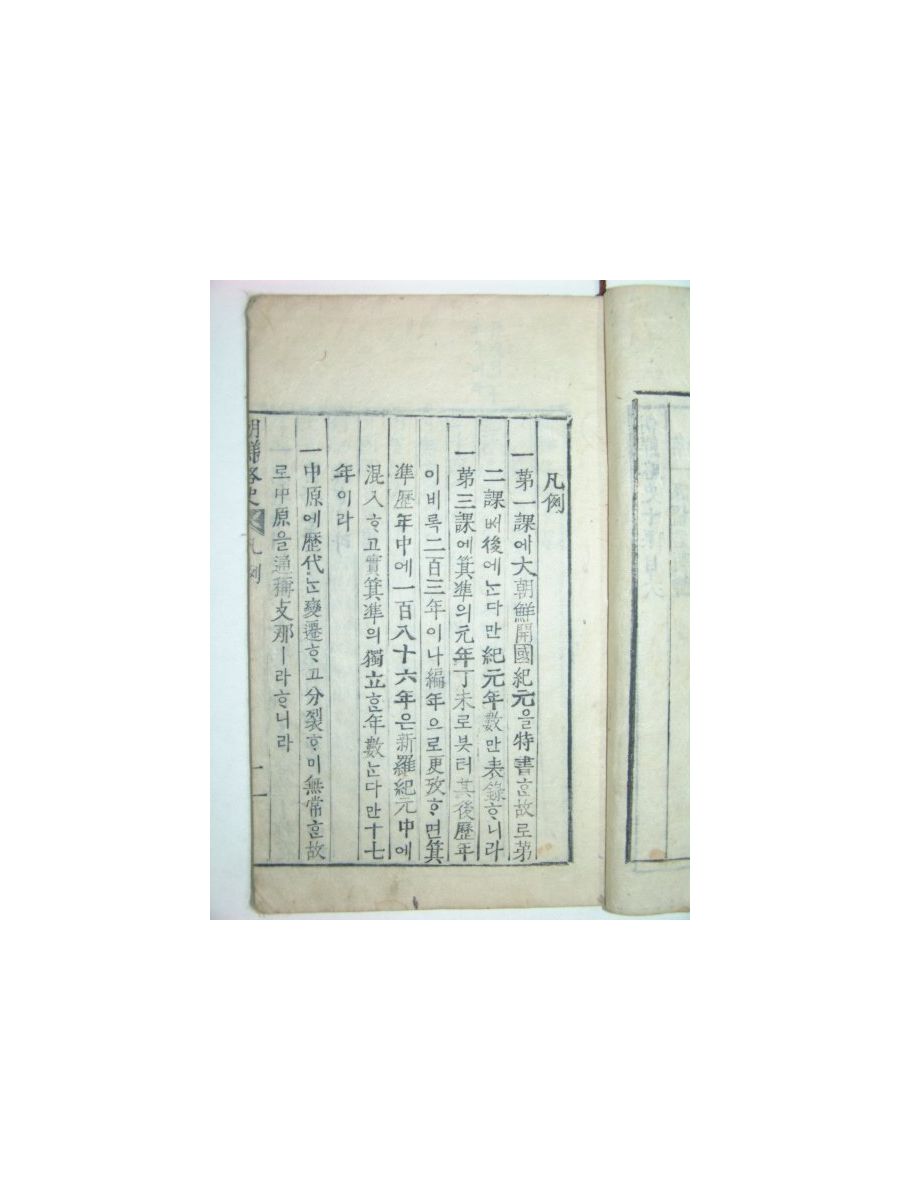 凡例
一 第一課에大朝鮮開國紀元을特書ᄒᆞᆫ故로第
二課ᄲᅥ後에ᄂᆞᆫ다만紀元年數만表錄ᄒᆞ니라
一 第三課에箕準의元年丁未로븟터其後歷年
이비록二百三年이나編年으로更攷ᄒᆞ면箕
準歷年中에一百八十六年은新羅紀元中에
混入ᄒᆞ고實箕準의獨立ᄒᆞᆫ年數ᄂᆞᆫ다만十七
年이라
一 中原에歷代ᄂᆞᆫ變遷ᄒᆞ고分裂ᄒᆞ미無常ᄒᆞᆫ故
로中原을通稱支那ㅣ라ᄒᆞ니라
朝鮮略史 凡例 一